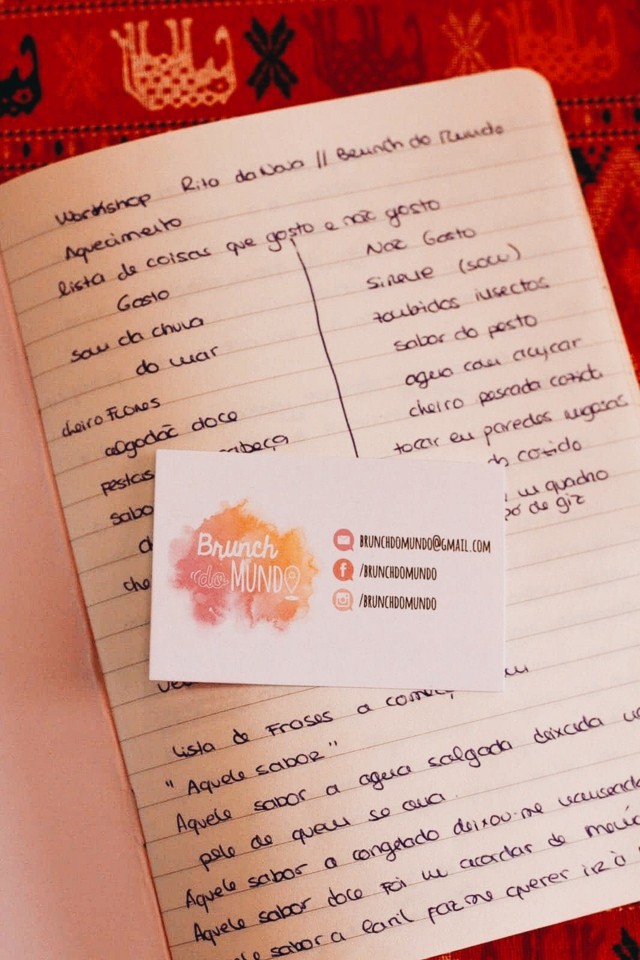 Workshop Rita da Nova // Brunch do Mundo
Aquecimento
lista de coisas que gosto e não gosto
Gosto
som da chuva
do mar
cheiro Flores
algodão doce
festas cabeça
sabo
che
Não Gosto
sirene (som)
zumbidos insectos
sabor do pesto
agua com açucar
cheiro pescada cozida
tocar em paredes rugosas
cozido
quadro
pó de giz
Brunch
do MUNDO
BRUNCHDOMUNDO@GMAIL.COM
/BRUNCHDOMUNDO
/BRUNCHDOMUNDO
lista de Frases a começ
"Aquele sabor"
Aquele sabor a agua salgada deixada
pele de quem se ama.
Aquele sabor a congelado deixou-me
Aquele sabor doce foi um acordar de
sabor a caril faz-me querer ir à